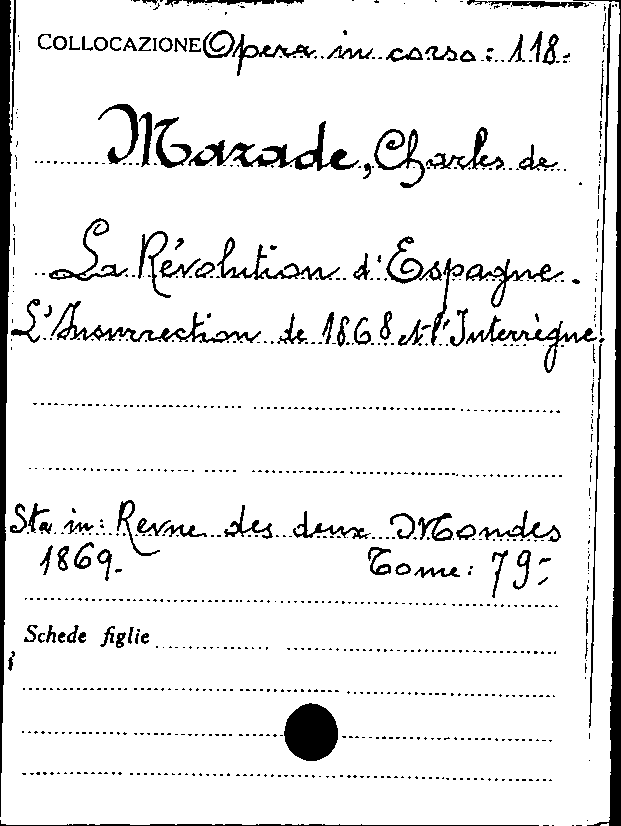 COLLOCAZIONE Opera in corso: 118-
Mazade, Charles de
La Révolution d'Espagne.
L'Insurrection de 1868 et l'Interrègne.
Sta in: Revue des deux Mondes
1869. Tome: 79-
Schede figlie